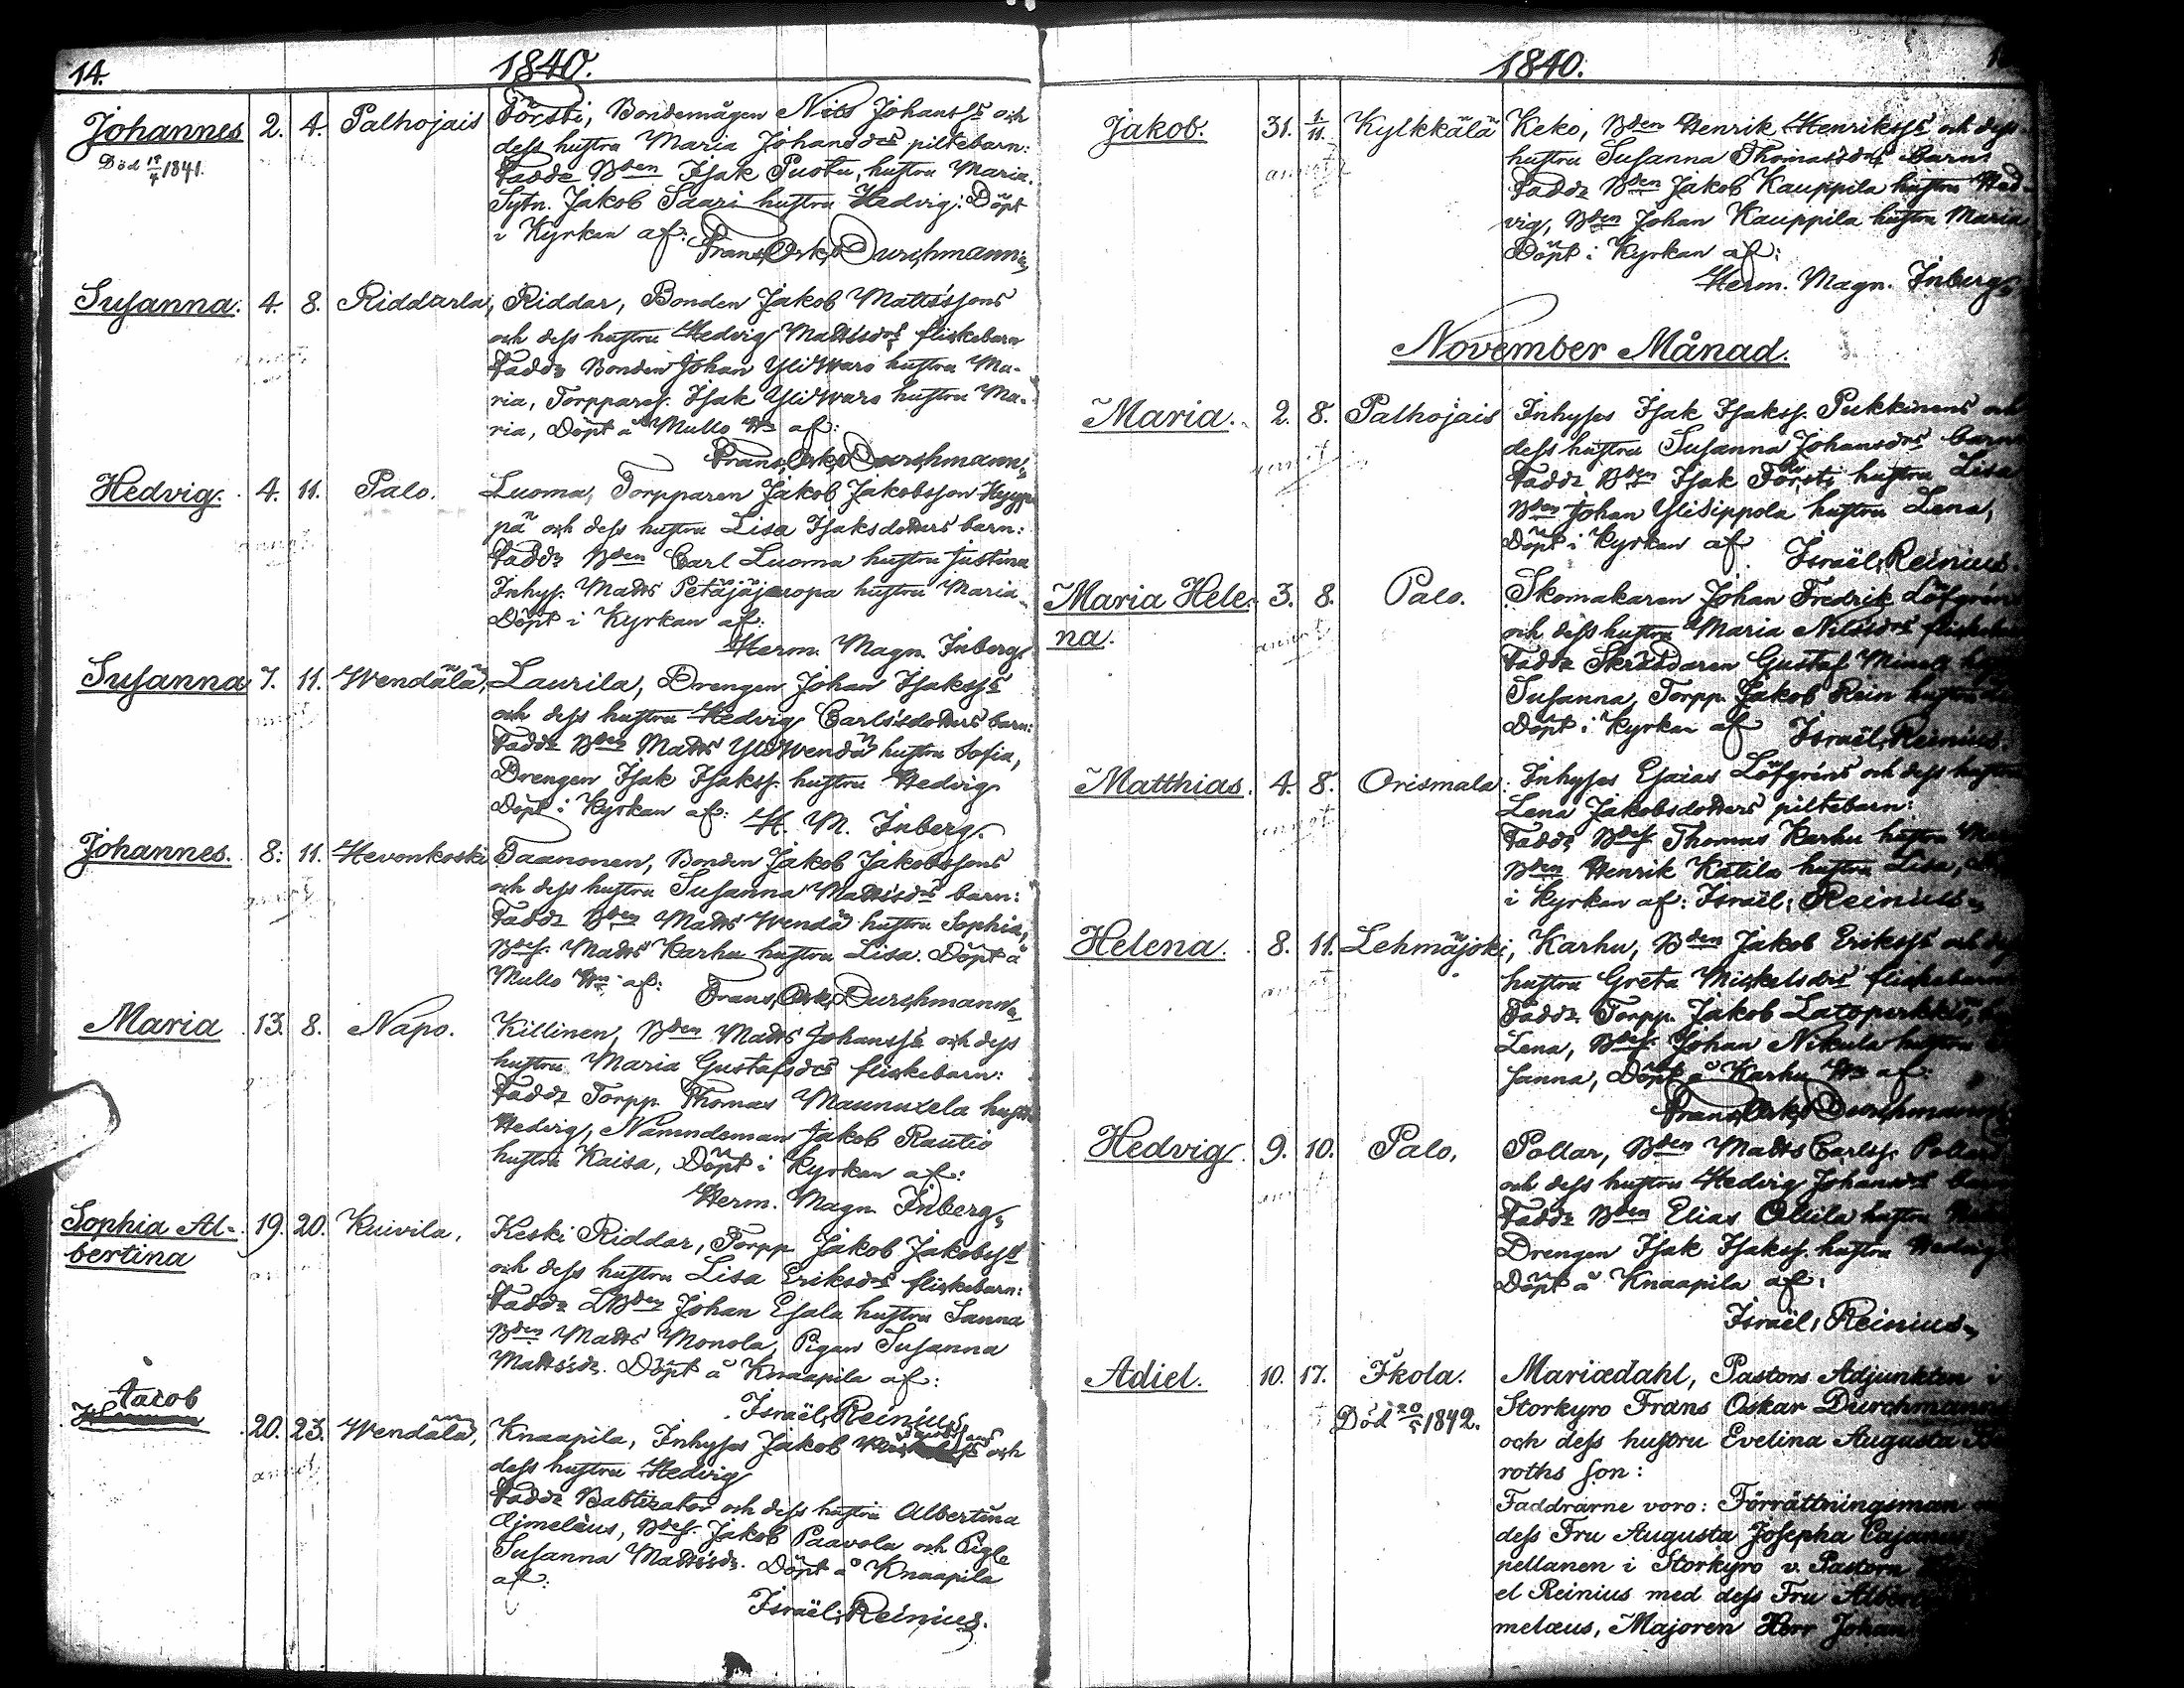 14.
1840.
Johannes 2. 4. Palhojais Törsti, Bondemågen Nils Johanss:s och
Död 19/4 1841.
dess hustru Maria Johansdrs piltebarn:
Faddr Bden Isak Puotu, hustru Maria.
Sytn. Jakob Saari hustru Hedvig: Döpt
i Kyrkan af:
Frans Osk. Durchmann
Susanna. 4. 8. Riddarla, Riddar, Bonden Jakob Mattssons
och dess hustru Hedvig Mattsdrs flickebarn
Faddr Bonden Johan YliWaro hustru Ma-
ria, Torpparen Isak YliWaro hustru Ma-
ria, Döpt å Mullo Hn af:
Frans Osk. Durchmann
Hedvig. 4. 11. Palo. Luoma, Torpparen Jakob Jakobsson Hyyp-
pä och dess hustru Lisa Isaksdotters barn:
Faddr Bden Carl Luoma hustru Justina
Inhys. Matts Petäjäjaropa hustru Maria
Döpt i Kyrkan af:
Herm. Magn. Inberg
Susanna 7. 11. Wendälä, Laurila, Drengen Johan Isakss:s
och dess hustru Hedvig Carlsdotters barn:
Faddr Bden Matts YliWendä hustru Sofia,
Drengen Isak Isakss. hustru Hedvig
Döpt i Kyrkan af: H. M. Inberg.
Johannes. 8. 11. Hevonkoski Taanonen, Bonden Jakob Jakobssons
och dess hustru Susanna Mattsdrs barn:
Faddr Bden Matts Wendä hustru Sophia,
Bdes. Matts Karhu hustru Lisa. Döpt å
Mullo Hn af:
Frans Osk. Durchmann
Maria 13. 8. Napo. Killinen, Bden Matts Johanss:s och dess
hustru Maria Gustafsdrs flickebarn:
Faddr Torpp. Thomas Maunuxela hustru
Hedvig, Nämndeman Jakob Rautio
hustru Kaisa, Döpt i Kyrkan af:
Herm. Magn. Inberg
Sophia Al- 19. 20. Kuivila, Keski Riddar, Torpp. Jakob Jakobss:s
bertina
och dess hustru Lisa Eriksdrs flickebarn:
Faddr LBden Johan Esala hustru Sanna
Bden Matts Monola, Pigan Susanna
Mattsdr. Döpt å Knaapila af:
Israël Reinius
Jacob 20. 23. Wendälä, Knaapila, Inhyses Jakob och
dess hustru Hedvig
Faddr Babtizator och dess hustru Albertina
Aejmelæus, Bdes. Jakob Paavola och Pig.
Susanna Mattsdr. Döpt å Knaapila
af:
Israël Reinius.
1840.
Jakob. 31. 1/11. Kylkkälä Keko, Bden Henrik Henrikss:s och dess
hustru Susanna Thomasdrs barn:
Faddr Bden Jakob Kauppila hustru Hed-
vig, Bden Johan Kauppila hustru Maria
Döpt i Kyrkan af:
Herm. Magn. Inberg
November Månad.
Maria. 2. 8. Palhojais Inhyses Isak Isakss. Pukkinens och
dess hustru Susanna Johansdrs barn
Faddr Bden Isak Törsti hustru Lisa
Bden Johan YliSippola hustru Lena,
Döpt i Kyrkan af Israël Reinius.
Maria Hele- 3. 8. Palo. Skomakaren Johan Fredrik Löfgréns
na.
och dess hustru Maria Nilsdrs
Faddr Skräddaren Gustaf
Susanna, Torpp. Jakob Rein hustru
Döpt i Kyrkan af Israël Reinius.
Matthias. 4. 8. Orismala. Inhyses Esaias Löfgréns och dess hustru
Lena Jakobsdotters piltebarn:
Faddr Bdes Thomas Karhu hustru
Bden Henrik Katila hustru Lisa,
i Kyrkan af: Israël Reinius
Helena. 8. 11. Lehmäjoki, Karhu, Bden Jakob Erikss:s och
hustru Greta Mickelsdrs flickebarn
Faddr. Torpp. Jakob Latoperkkiö,
Lena, Bdes. Johan Nikula hustru
sanna, Döpt å Karhu Hn af:
Frans Osk. Durchmann
Hedvig 9. 10. Palo, Pollar, Bden Matts Carlss.
och dess hustru Hedvig Johansdrs
Faddr Bden Elias Ollila hustru
Drengen Isak Isakss. hustru Hedvig
Döpt å Knaapila af:
Israël Reinius
Adiel. 10. 17. Ikola. Mariædahl, Pastors Adjunkten i
Död 20/5 1842. Storkyro Frans Oskar Durchmanns
och dess hustru Evelina Augusta
roths son:
Faddrarne voro: Förrättningsman
dess Fru Augusta Josepha Cajanus,
pellanen i Storkyro v. Pastorn
el Reinius med dess Fru
melæus, Majoren Herr Johan